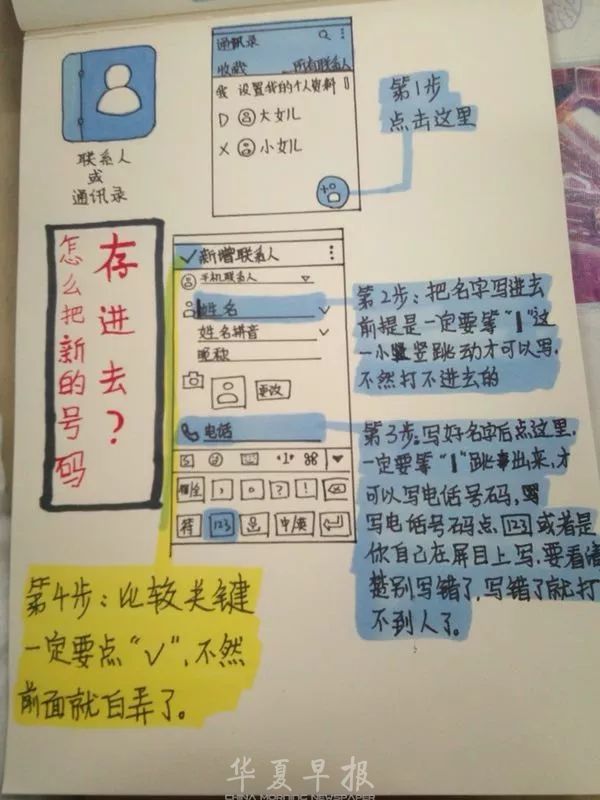 联系人
或
通讯录
通讯录
收藏 所有联系人
我 设置我的个人资料
D 大女儿
X 小女儿
第1步
点击这里
怎么把新的号码
存进去？
✓新增联系人
手机联系人
姓名
姓名拼音
昵称
更改
电话
, 。 ? !
符 123 中/英
第2步：把名字写进去
前提是一定要等"|"这
一小竖跳动才可以写.
不然打不进去的
第3步：写好名字后点这里.
一定要等"|"跳出来,才
可以写电话号码,
写电话号码点 123 或者是
你自己在屏目上写,要看清
楚别写错了,写错了就打
不到人了。
第4步：比较关键
一定要点"√",不然
前面就白弄了。
华夏早报
CHINA MORNING NEWSPAPER